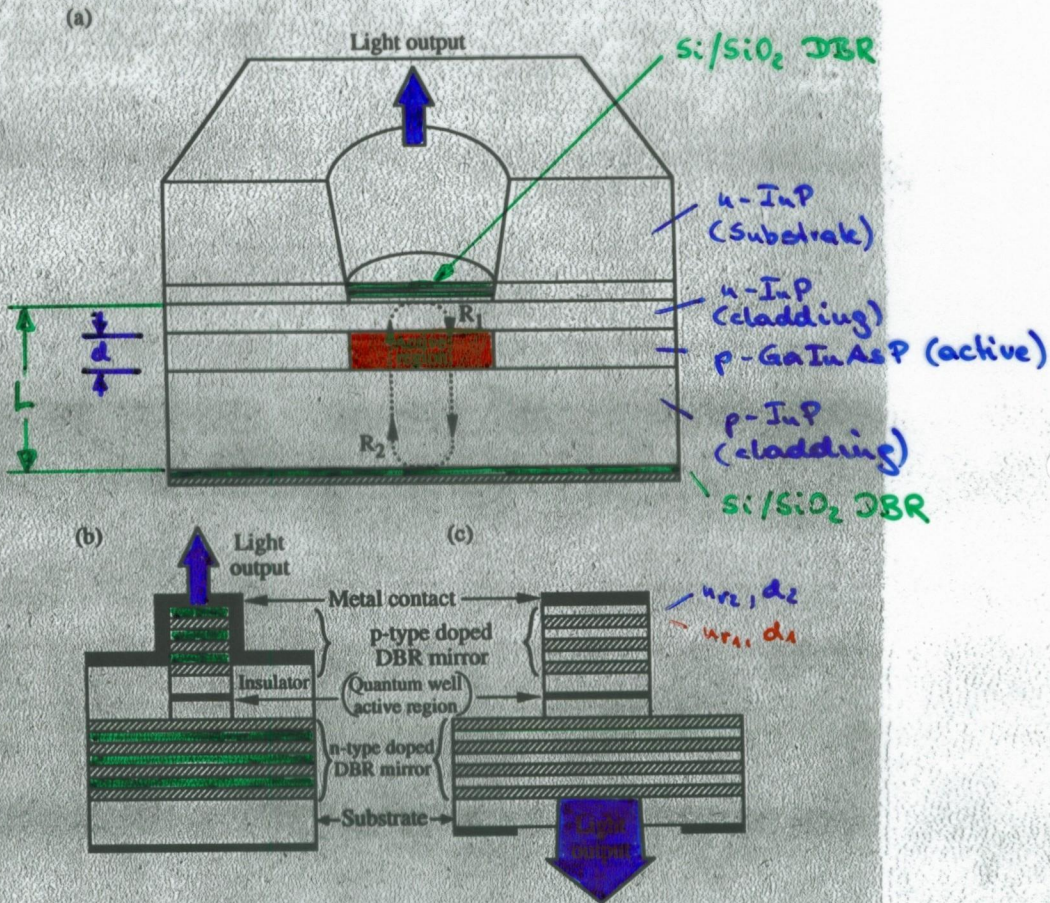 (a)
Light output
Si/SiO₂ DBR
n-InP
(Substrak)
n-InP
(cladding)
R₁
d
region
p-GaInAsP (active)
L
p-InP
(cladding)
R₂
Si/SiO₂ DBR
(b)
Light
output
(c)
Metal contact
nr2, d2
nr1, d1
p-type doped
DBR mirror
Insulator
(Quantum well
active region)
n-type doped
DBR mirror
Substrate
Light
output